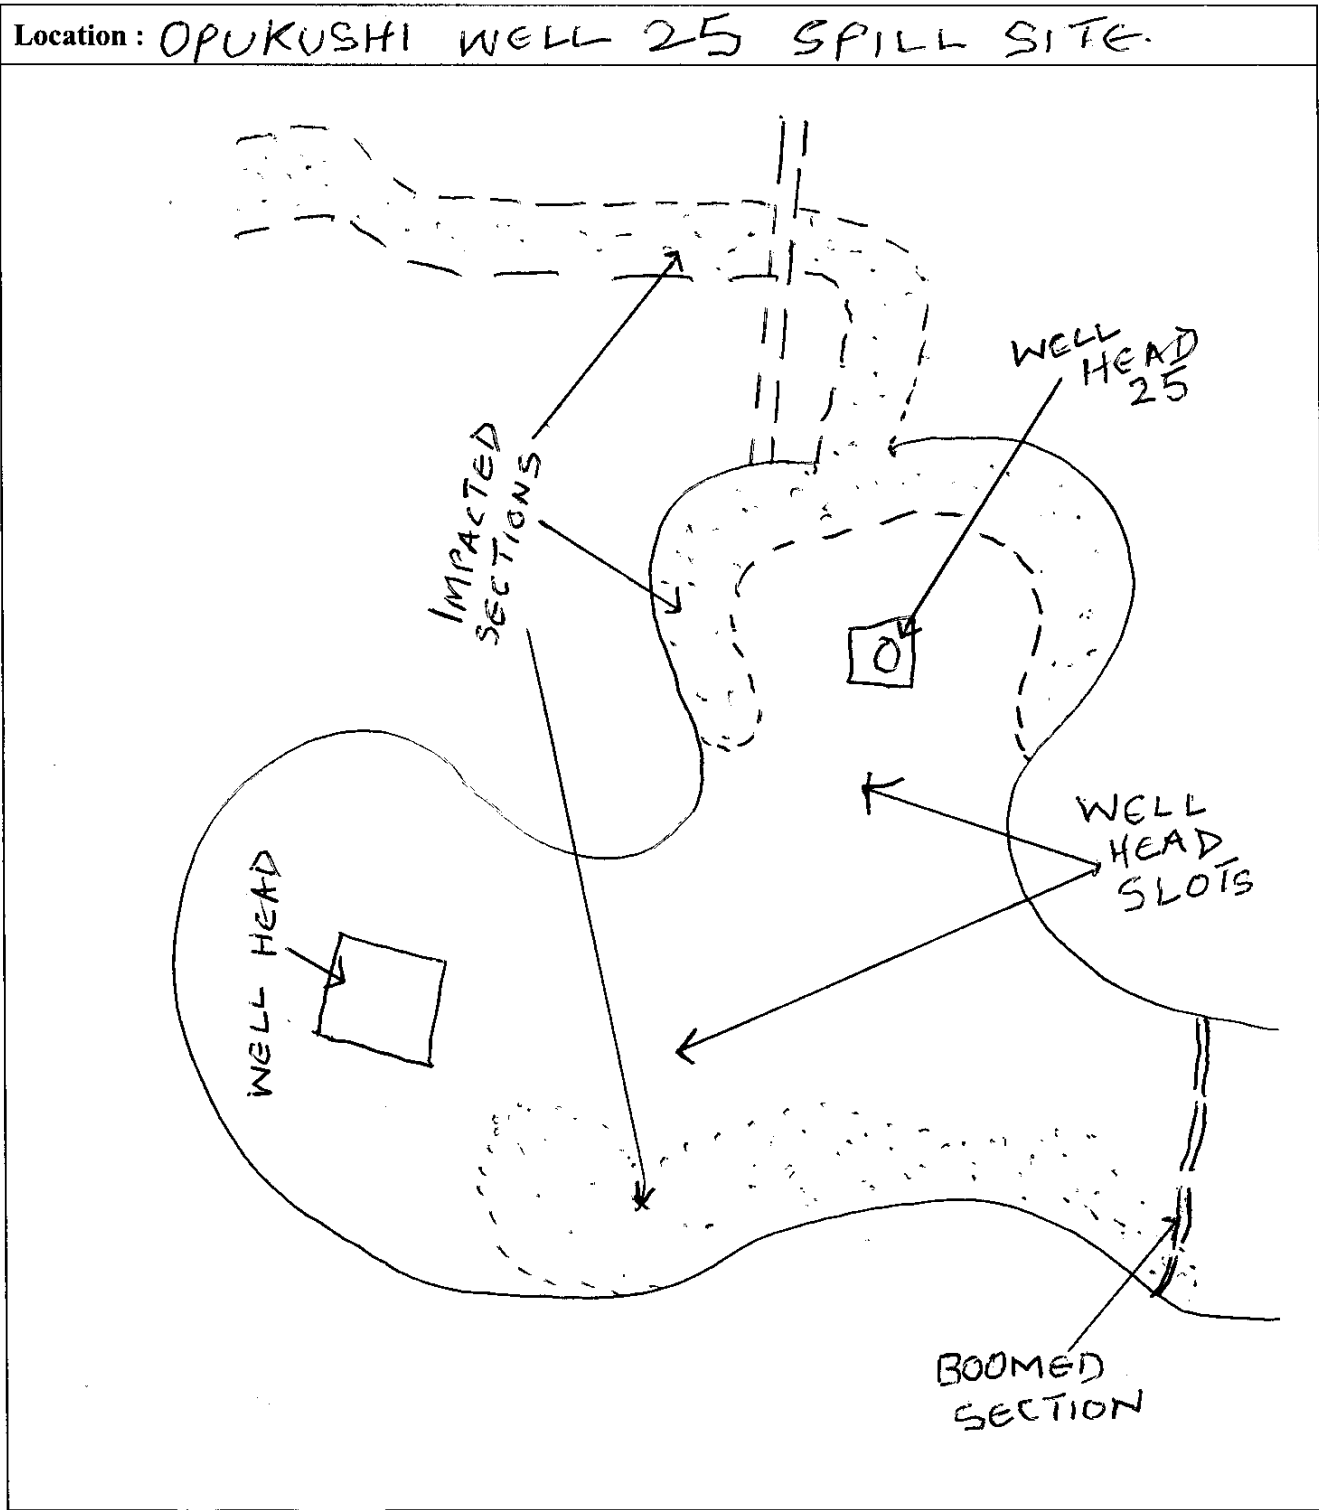 Location : OPUKUSHI WELL 25 SPILL SITE.
WELL
HEAD
25
IMPACTED
SECTIONS
WELL
HEAD
SLOTS
WELL HEAD
BOOMED
SECTION